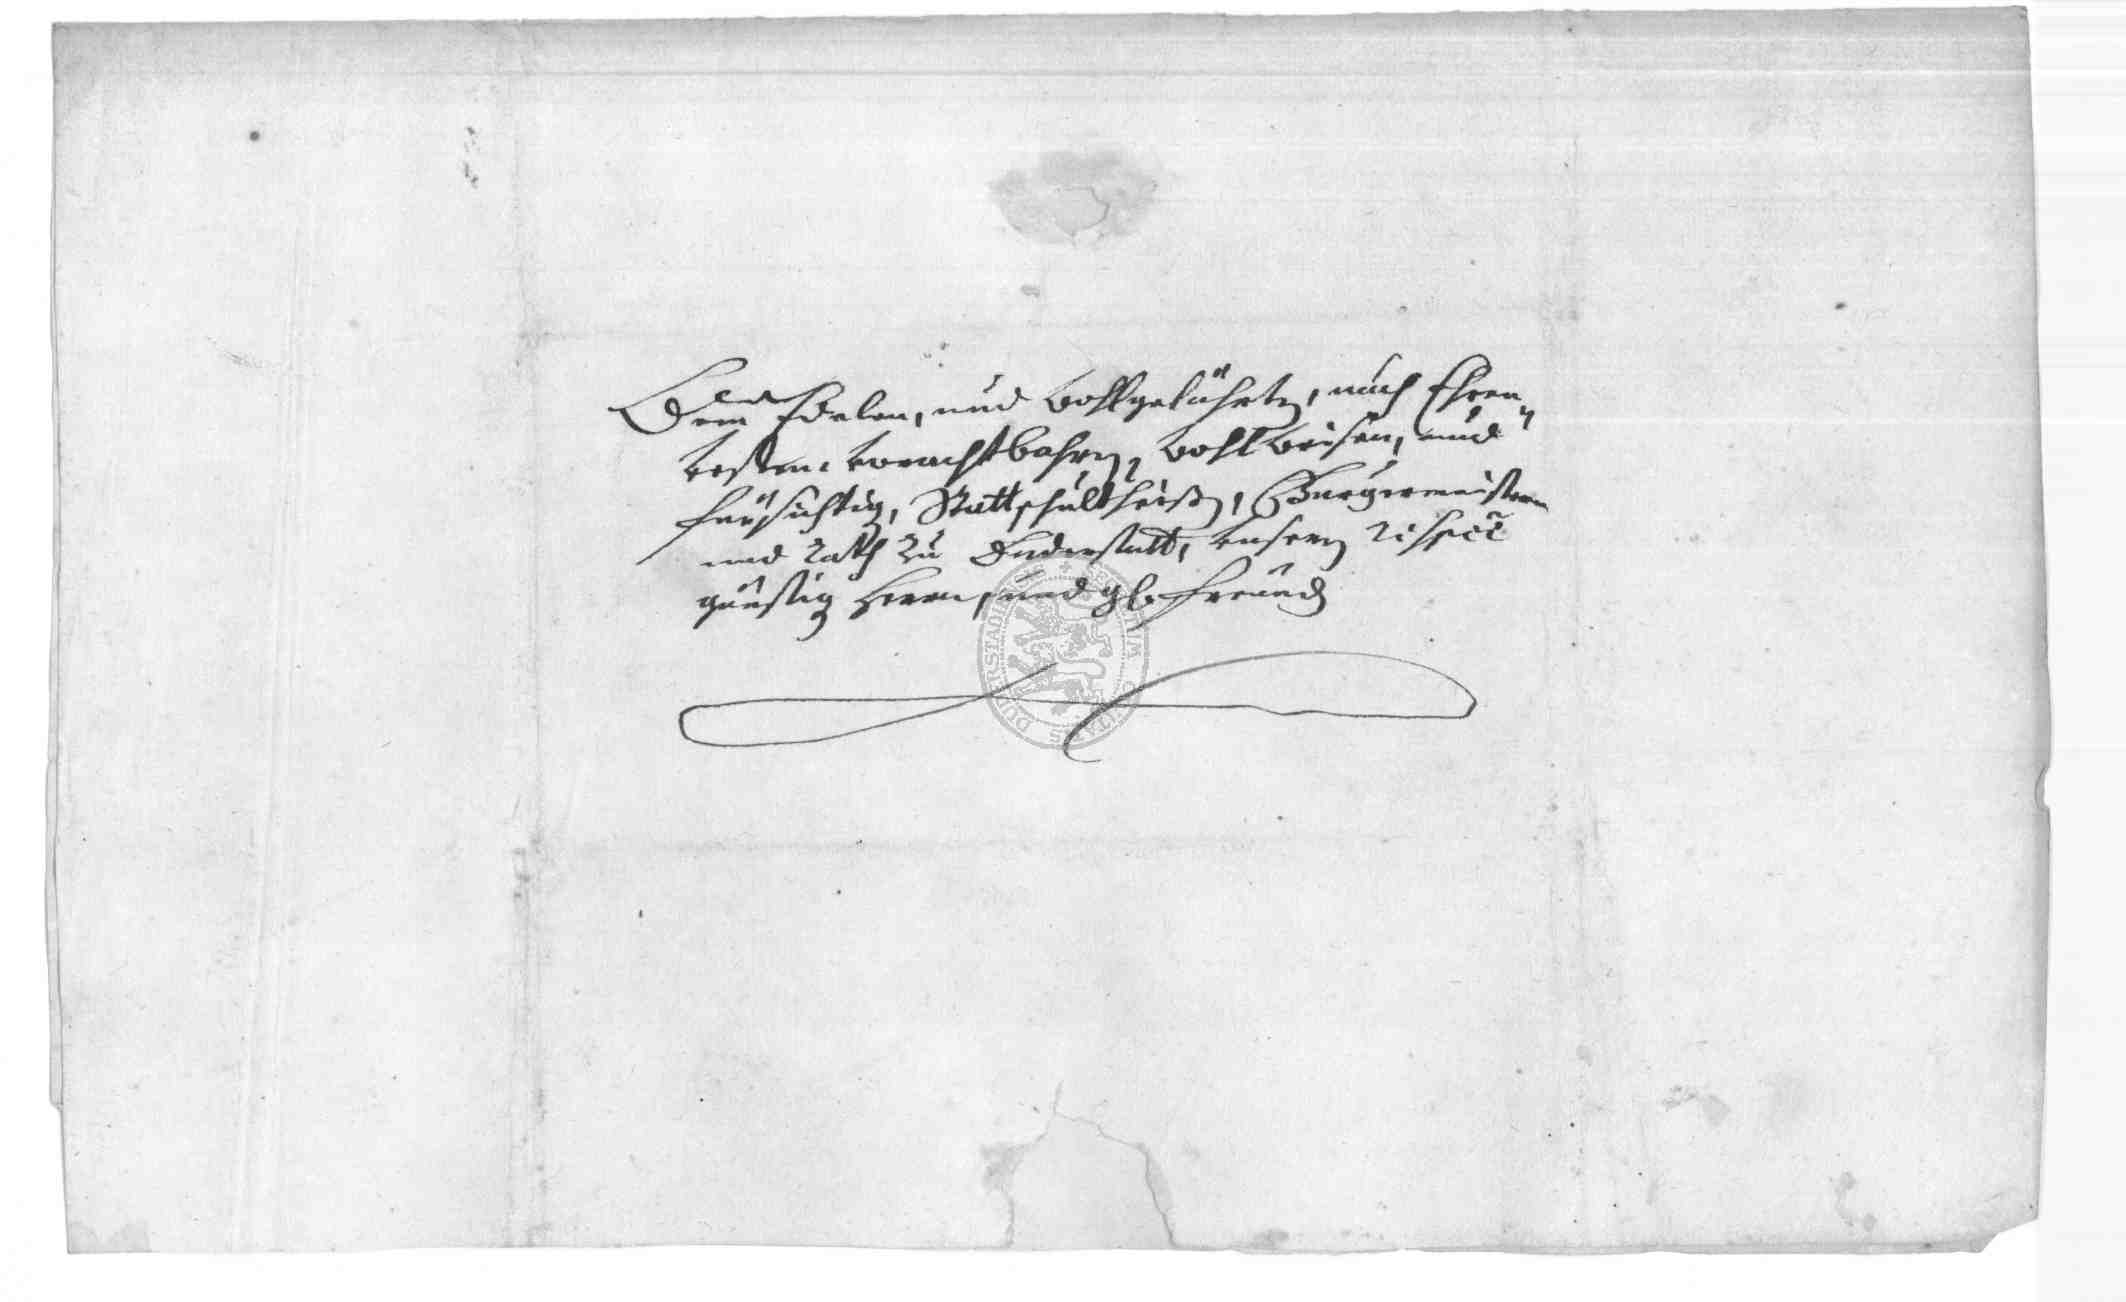 Dem Edelen, und wohlgelährten, auch Ehren-
vesten vorachtbahren, wohlweisen, und
fürsichtig, Stattschultheißen, Burgermeistern
und Rath zu Duderstatt, unsern respec
günstig Herrn, und gl. freund